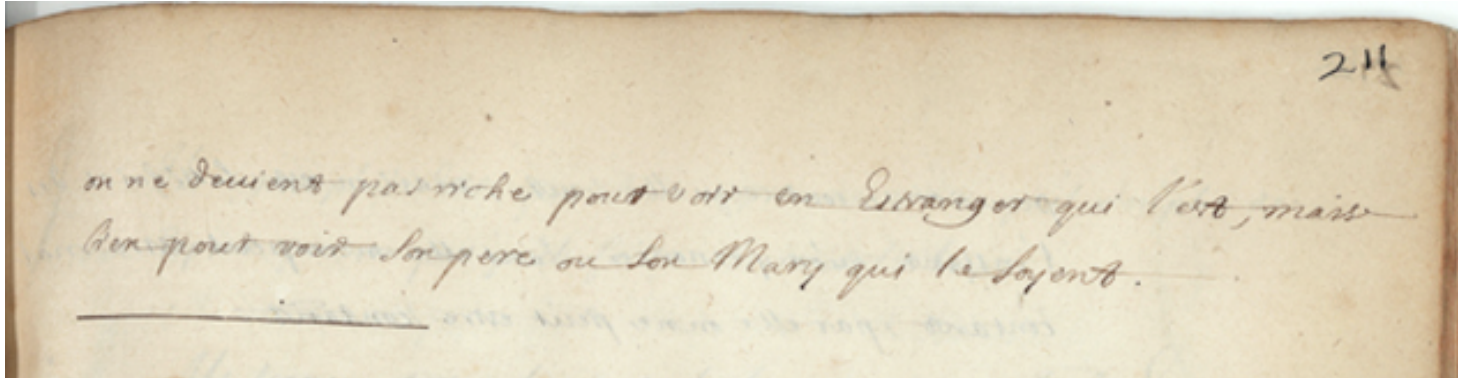 211
on ne deuient pas riche pour voir un Estranger qui l'est, mais
bien pour voir son pere ou son Mary qui le soyent.